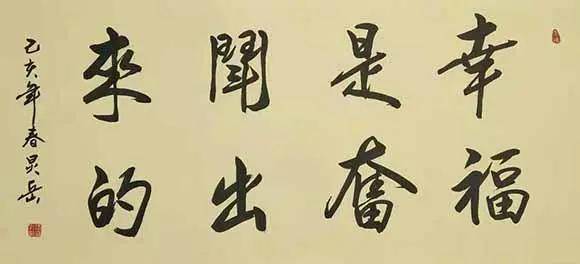 幸福
是奮
鬪出
來的
己亥年春昊岳